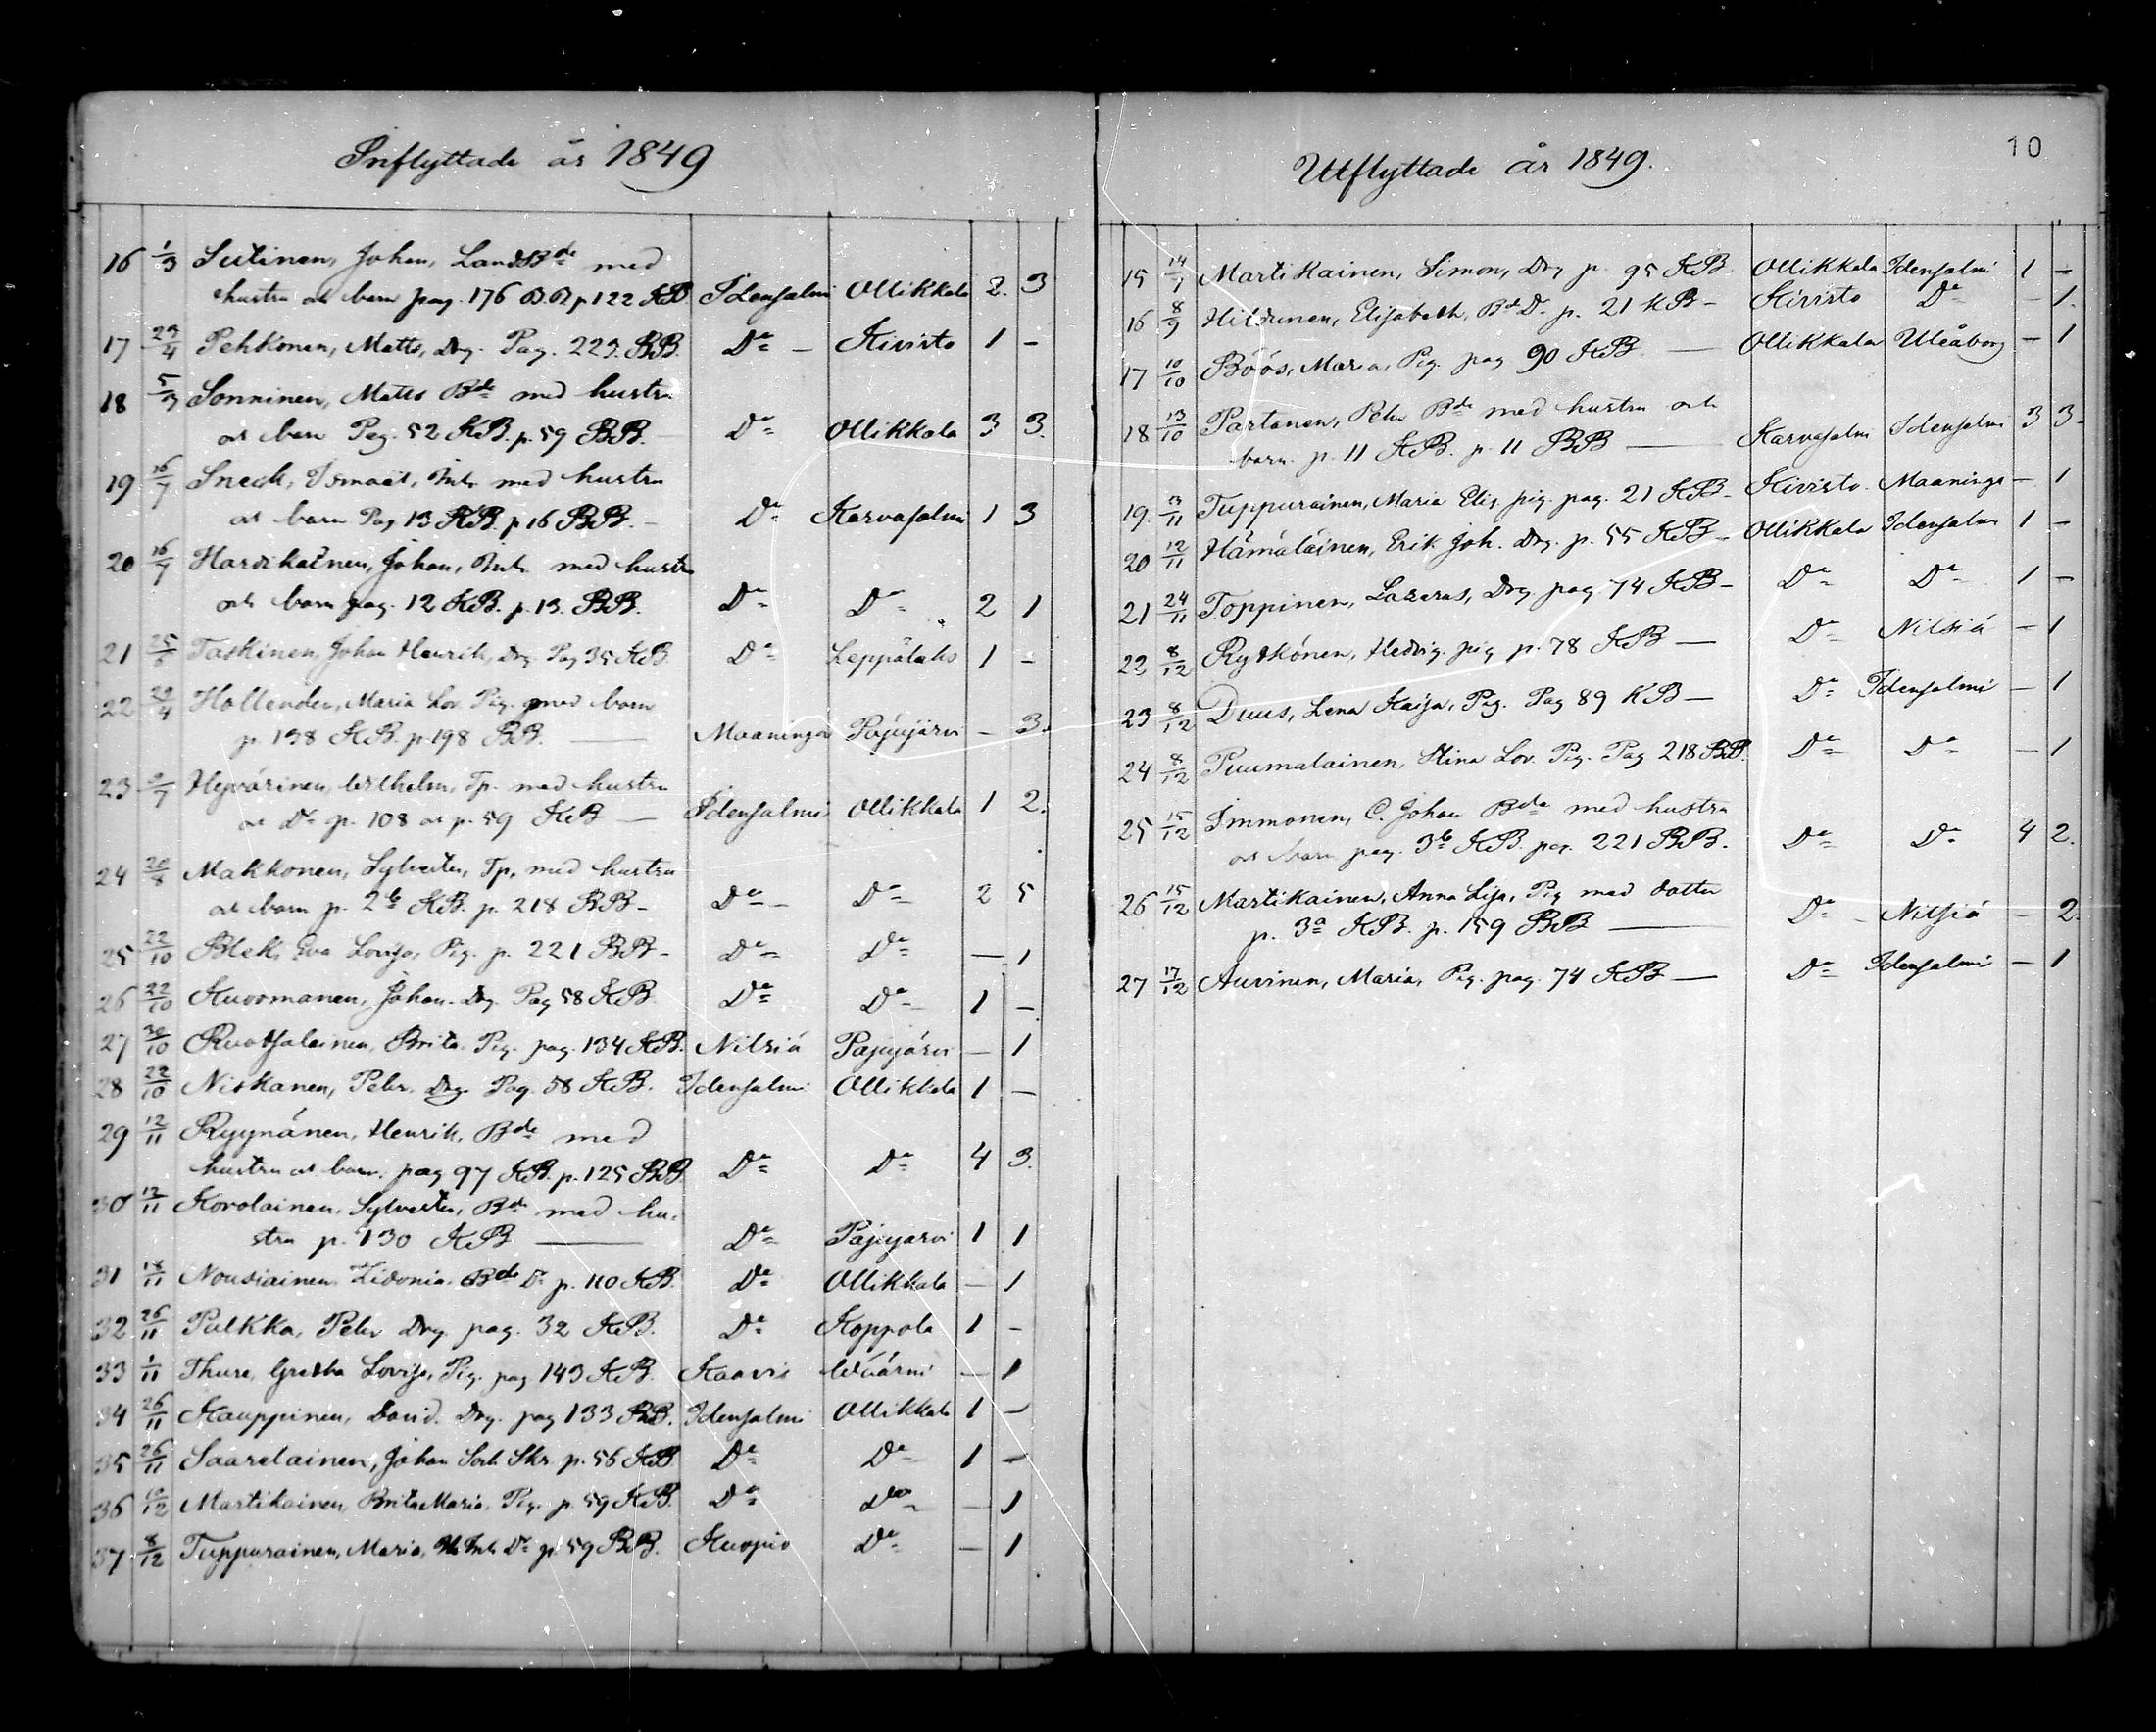 Inflyttade år 1849
16 1/3 Sutinen, Johan, LandtBde med
hustru och barn pag. 176 BB p 122 KB Idensalmi Ollikkala 2. 3
17 23/4 Pehkonen, Matts, Drg. Pag. 223. BB. Do — Kivisto 1 -
18 5/3 Sonninen, Matts Bde med hustru
och barn Pag. 52 KB. p. 59 BB. Do Ollikkala 3 3.
19 16/7 Sneck, Ismaël, Inh. med hustru
och barn Pag 13 KB. p 16 BB. - Do Karvasalmi 1 3
20 16/7 Hardikainen, Johan, Inh. med hustru
och barn pag. 12 KB. p. 13. BB. Do Do 2 1
21 25/6 Taskinen, Johan Henrik, Drg. Pag 35 KB Do Leppälaks 1 -
22 29/4 Hollender, Maria Lov. Pig. med barn
p. 138 KB. p. 198 BB. — Maaninga Pajujärvi - 3.
23 2/7 Hyvärinen, Wilhelm, Tp. med hustru
och Dr p. 108 och p. 59 KB — Idensalmi Ollikkala 1 2.
24 20/8 Makkonen, Sylvester, Tp. med hustru
och barn p. 2b KB. p. 218 BB - Do - Do 2 5
25 22/10 Blek, Eva Lovisa, Pig. p. 221 BB - Do Do — 1
26 22/10 Kuosmanen, Johan. Drg. Pag 58 KB Do Do 1 -
27 30/10 Ruotsalainen, Brita. Pig. pag. 134 KB. Nilsiä Pajujärvi — 1
28 22/10 Niskanen, Pehr. Drg. Pag. 58 KB. Idensalmi Ollikkala 1 —
29 12/11 Ryynänen, Henrik, Bde med
hustru och barn. pag 97 KB. p. 125 BB Do Do 4 3.
30 12/11 Korolainen, Sylvester, Bde med hu-
stru p. 130 KB — Do Pajujärvi 1 1
31 18/11 Nousiainen, Zidonia. Bde Dr p. 110 KB. Do Ollikkala — 1
32 26/11 Pulkka, Pehr Drg. pag. 32 KB. Do Koppola 1 -
33 1/11 Thure, Gretha Lovisa, Pig. pag 143 KB. Kaavi Wäärni — 1
34 26/11 Kauppinen, David. Drg. pag 133 BB. Idensalmi Ollikkala 1 -
35 26/11 Saarelainen, Johan Sock. Skr. p. 56 KB Do Do 1 -
36 10/12 Martikainen, Brita Maria, Pig. p. 59 KB. Do Do — 1
37 8/12 Tuppurainen, Maria, Inh. Dr p. 59 BB. Kuopio Do — 1
10
Utflyttade år 1849.
15 14/7 Martikainen, Simon, Drg p. 95 KB Ollikkala Idensalmi 1 -
16 8/9 Hildunen, Elisabeth, Bde D. p. 21 KB - Kivisto Do - 1.
17 10/10 Böös, Maria, Pig. pag 90 KB — Ollikkala Uleåborg - 1
18 13/10 Partanen, Pehr Bde med hustru och
barn. p. 11 KB. p. 11 BB — Karvasalmi Idensalmi 3 3.
19. 3/11 Tuppurainen, Maria Elis. pig. pag. 21 KB - Kivisto. Maaninga - 1
20 12/11 Hämäläinen, Erik Joh. Drg. p. 55 KB - Ollikkala Idensalmi 1 -
21 24/11 Toppinen, Lazarus, Drg pag 74 KB - Do Do 1 -
22 8/12 Rytkönen, Hedvig. pig p. 78 KB — Do Nilsiä - 1
23 8/12 Duus, Lena Kaisa, Pig. Pag 89 KB — Do Idensalmi - 1
24 8/12 Puumalainen, Stina Lov. Pig. Pag 218 BB. Do Do - 1
25 15/12 Immonen, C. Johan Bde med hustru
och barn pag. 3b KB. pag. 221 BB. Do Do 4 2.
26 15/12 Martikainen, Anna Lisa, Pig med dotter
p. 3a KB. p. 159 BB — Do - Nilsiä - 2.
27 17/12 Auvinen, Maria, Pig. pag. 74 KB — Do Idensalmi - 1